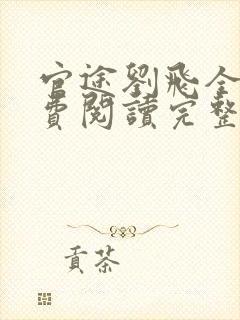 官途劉飛全
費閱讀完整
貢茶